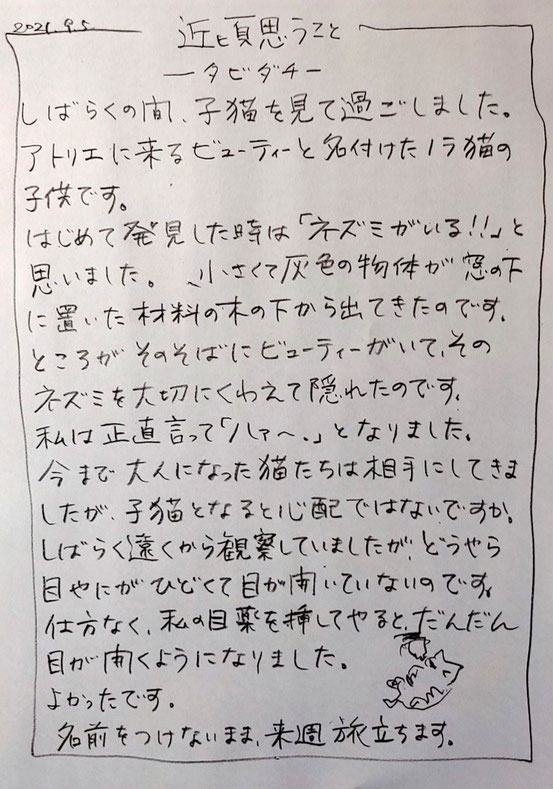 2021.9.5
近頃思うこと
ータビダチー
しばらくの間、子猫を見て過ごしました。
アトリエに来るビューティーと名付けたノラ猫の
子供です。
はじめて発見した時は「ネズミがいる!!」と
思いました。小さくて灰色の物体が窓の下
に置いた材料の木の下から出てきたのです。
ところがそのそばにビューティーがいて、その
ネズミを大切にくわえて隠れたのです。
私は正直言って「ハァ〜。」となりました。
今まで大人になった猫たちは相手にしてきま
したが、子猫となると心配ではないですか。
しばらく遠くから観察していましたが、どうやら
目やにがひどくて目が開いていないのです。
仕方なく、私の目薬を挿してやると、だんだん
目が開くようになりました。
よかったです。
名前をつけないまま、来週旅立ちます。